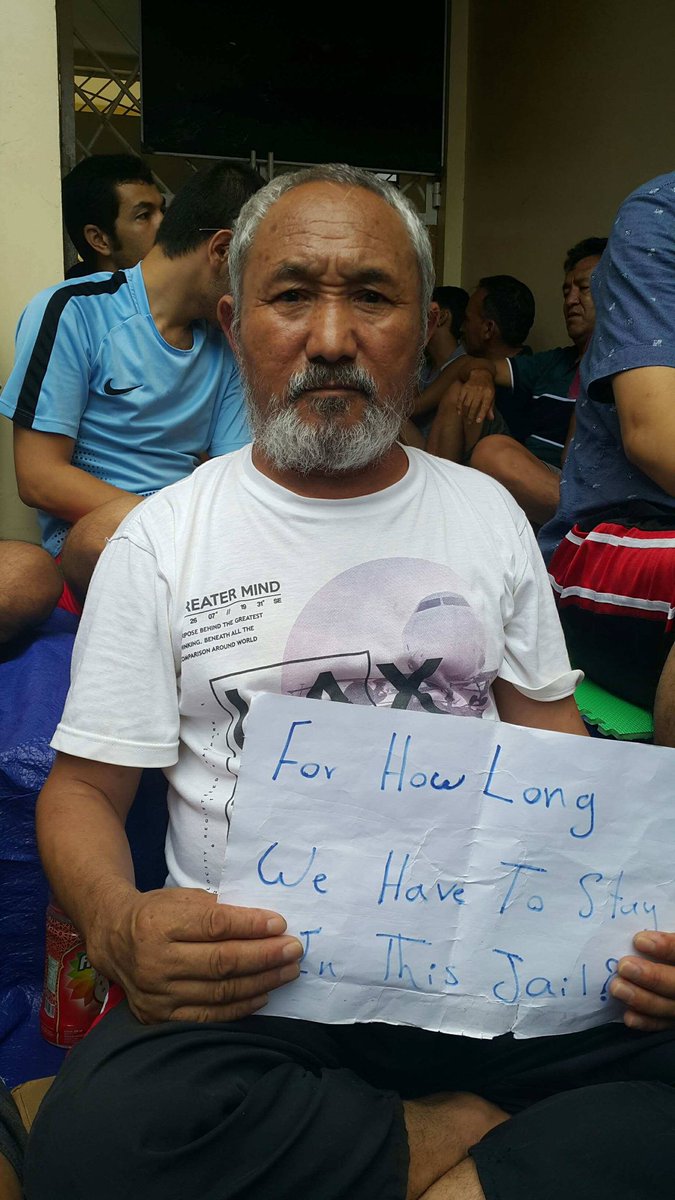 REATER MIND
26 07" // 19 31° SE
POSE BEHIND THE GREATEST
INKING. BENEATH ALL THE
COMPARISON AROUND WORLD
LAX
For How Long
We Have To Stay
In This Jail?